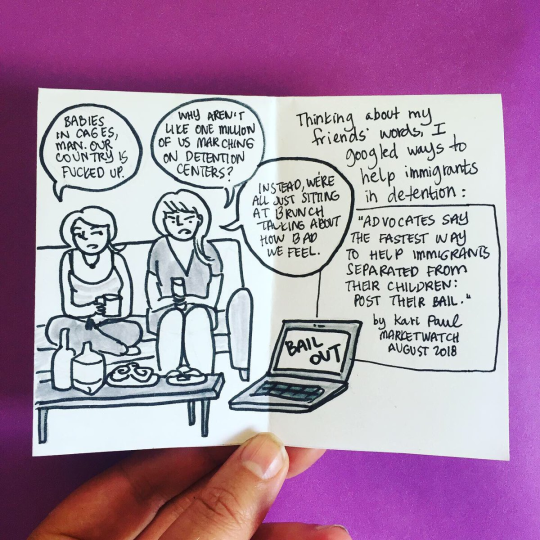 BABIES
IN CAGES,
MAN. OUR
COUNTRY IS
FUCKED UP.
WHY AREN'T
LIKE ONE MILLION
OF US MARCHING
ON DETENTION
CENTERS?
INSTEAD, WE'RE
ALL JUST SITTING
AT BRUNCH
TALKING ABOUT
HOW BAD
WE FEEL.
Thinking about my
friends' words, I
googled ways to
help immigrants
in detention:
"ADVOCATES SAY
THE FASTEST WAY
TO HELP IMMIGRANTS
SEPARATED FROM
THEIR CHILDREN:
POST THEIR BAIL."
by Kari Paul
MARKETWATCH
AUGUST 2018
BAIL
OUT